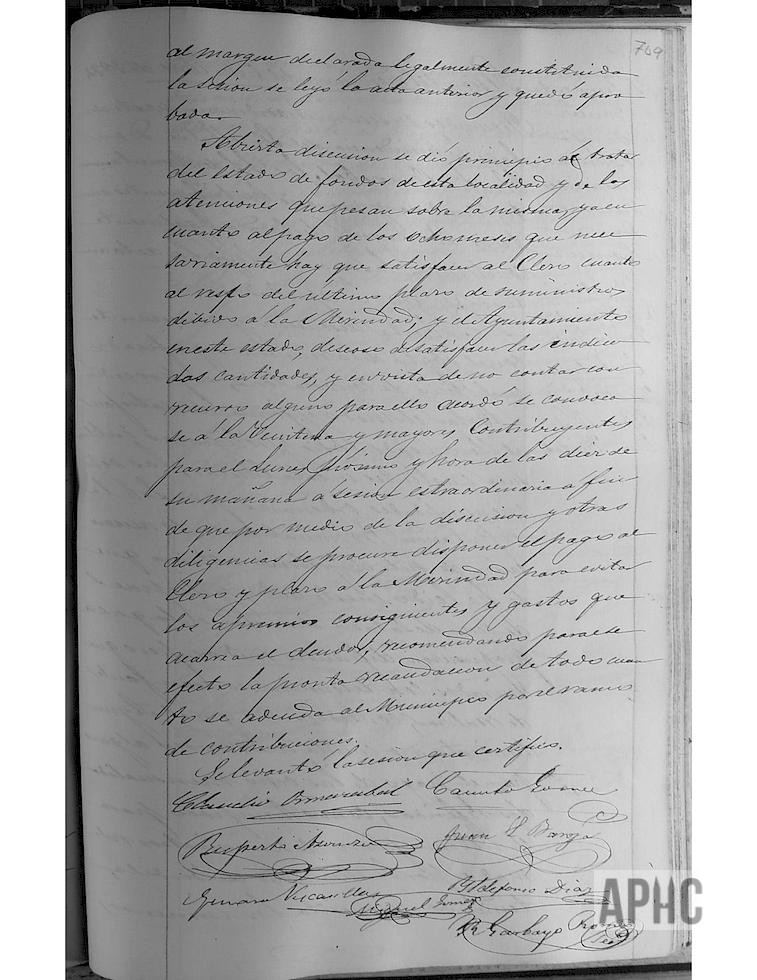 709
al margen declarada legalmente constituida
la sesion se leyó la acta anterior y quedó apro
bada.
Abierta discusion se dió principio al tratar
del estado de fondos de esta localidad y de las
atenciones que pesan sobre la misma, ya en
cuanto al pago de los ocho meses que nece
sariamente hay que satisfacer al Clero cuanto
al resto del ultimo plazo de suministros
debidos á la Merindad; y el Ayuntamiento
en este estado, deseoso de satisfacer las indica
das cantidades, y en vista de no contar con
recurso alguno para ello acordó se convoca
se á la Veintena y mayores Contribuyentes
para el Lunes próximo y hora de las diez de
su mañana á sesion estraordinaria á fin
de que por medio de la discusion y otras
diligencias se procure disponer el pago al
Clero y plazo á la Merindad para evitar
los apremios consiguientes y gastos que
acarrea el deudor, recomendando para ese
efecto la pronta recaudacion de todo cuan
to se adeuda al Municipio por el ramo
de contribuciones.
Se levantó la sesion que certifico.
Claudio Camilo Gomez
Ruperto Juan
Genaro Miguel Gomez Yldefonso Diaz
R Garbayo
APHC